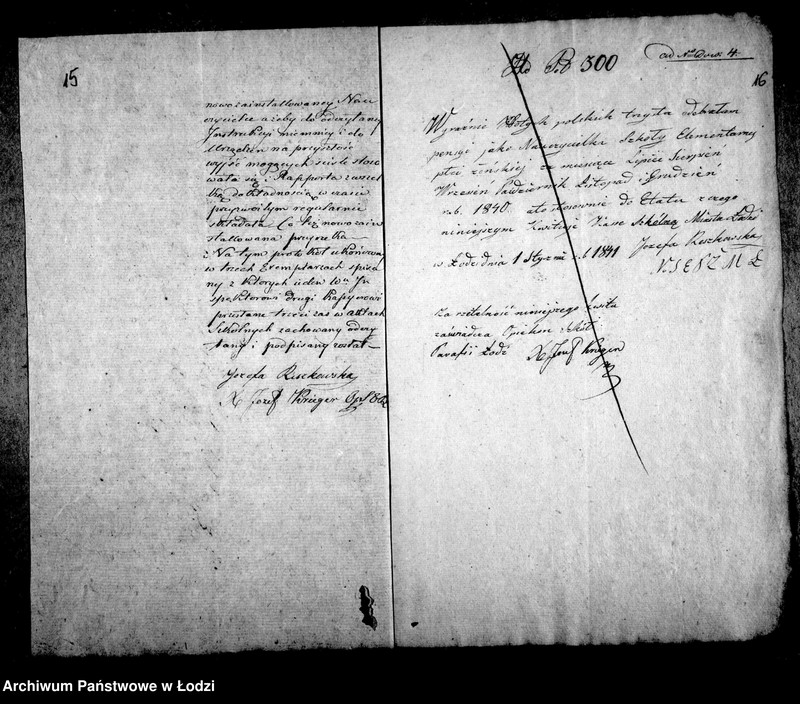 15
nowozainstallowaney Nau
czycielce ażeby do odczytaney
Instrukcyi niemniey i do
Urządzeń na przyszłość
wyjść mogących ściśle stoso
wała się i Rapporta z wszel
ką dokładnością w czasie
przyzwoitym regularnie
składała Co też nowo zain
stallowana przyrzekła
Na tym protokół ukończony
w trzech Exemplarzach spisa
ny z których ieden Wu In
spektorowi drugi
przesłane trzeci zaś w aktach
Szkolnych zachowany odczy
tany i podpisany został
Jozefa Reszkowska
X Jozef Krüger Op S Ełł
ad Nrum 4.
16
Złp 300
Wyraźnie Złotych polskich trzysta odebrałam
pensyi jako Nauczycielka Szkoły Elementarney
płci żeńskiej za miesiące Lipiec Sierpień
Wrzesień Październik Listopad i Grudzień
r.b. 1840 stosownie do Etatu z czego
niniejszym kwituję Kasse Szkolną Miasta Łodzi
w Łodzi dnia 1 Stycznia 1841
Jozefa Reszkowska
N S E P Ż M Ł
Za rzetelność niniejszego kwitu
zaświadcza Opiekun Szkół
Parafii Łodzi X Jozef Krüger
Archiwum Państwowe w Łodzi